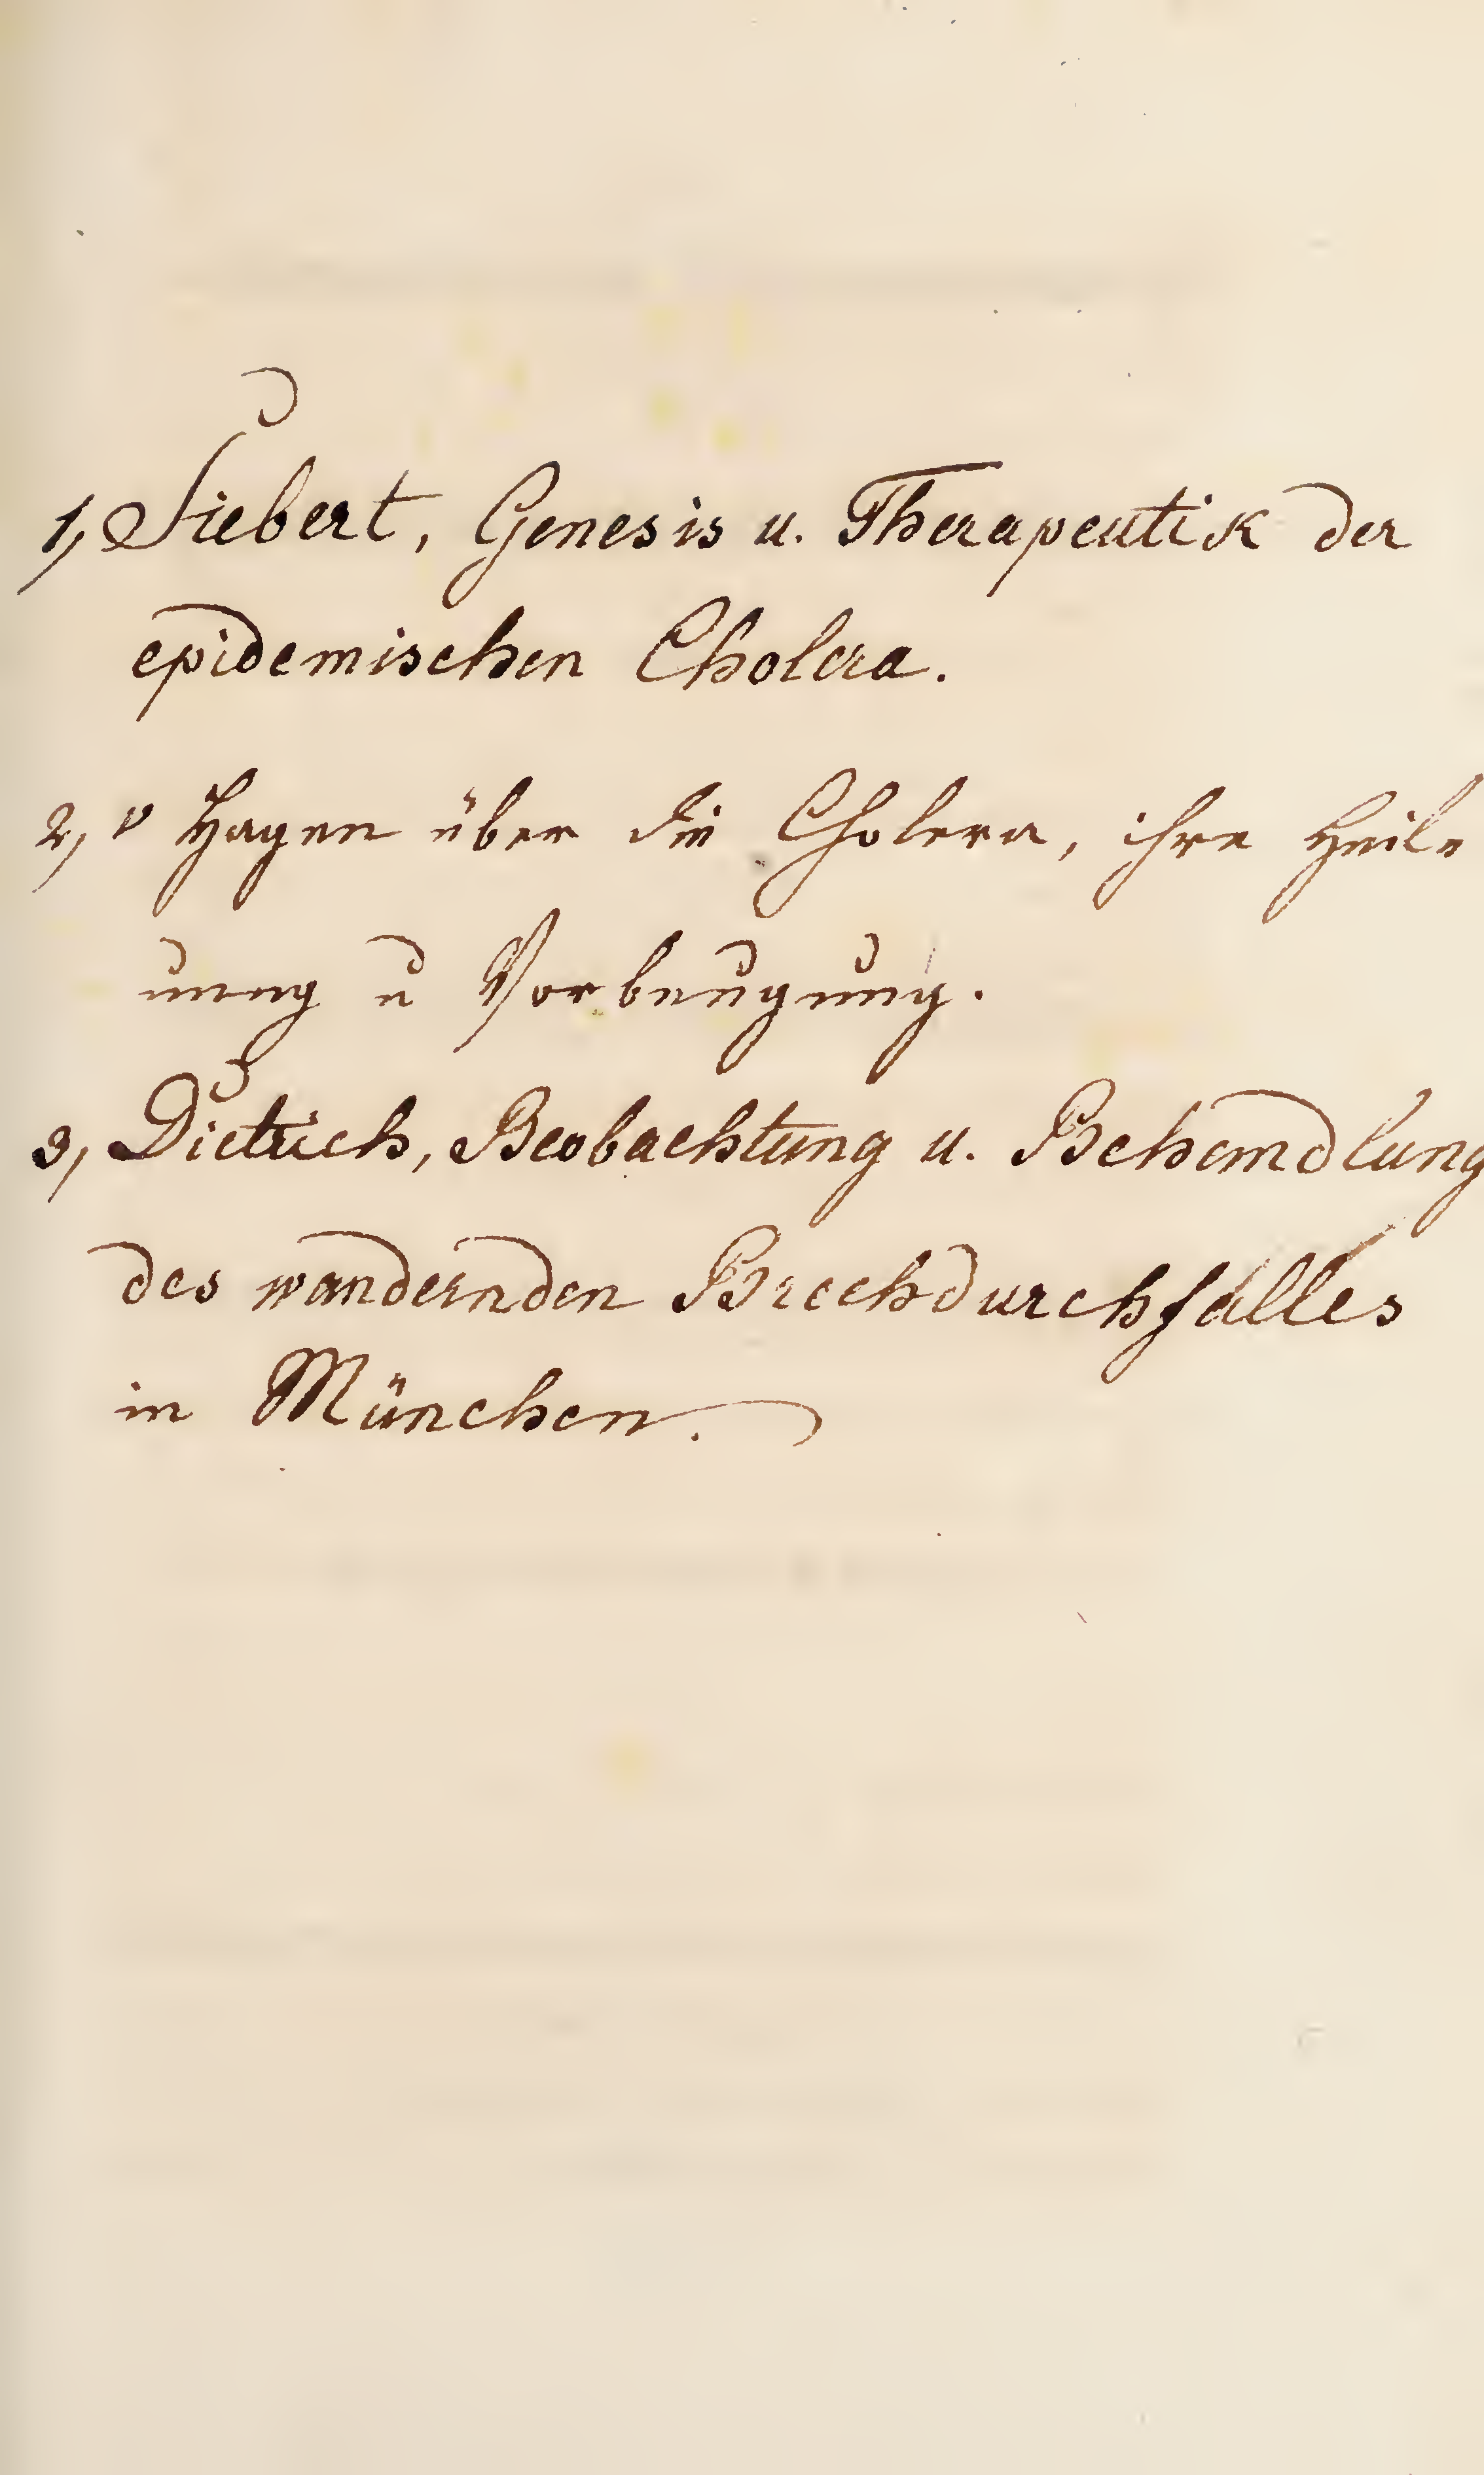 1, Siebert, Genesis u. Therapeutik der
epidemischen Cholera.
2, v Hagen über die Cholera, ihre Heil-
ung u Vorbeugung.
3, Dietrich, Beobachtung u. Behandlung
des wandernden Brechdurchfalles
in München.